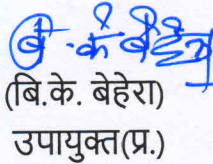 बि.के बेहेरा
(बि.के. बेहेरा)
उपायुक्त(प्र.)